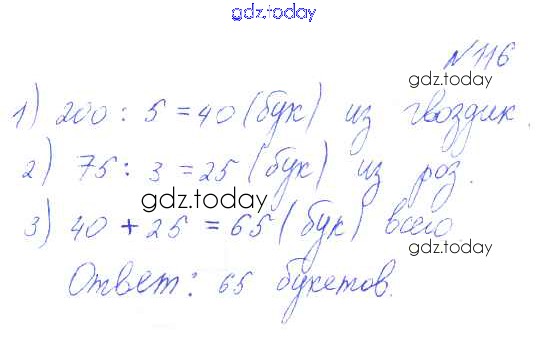 gdz.today
№116
gdz.today
1) 200 : 5 = 40 (бук) из гвоздик.
2) 75 : 3 = 25 (бук) из роз.
gdz.today
3) 40 + 25 = 65 (бук) всего
gdz.today
Ответ: 65 букетов.